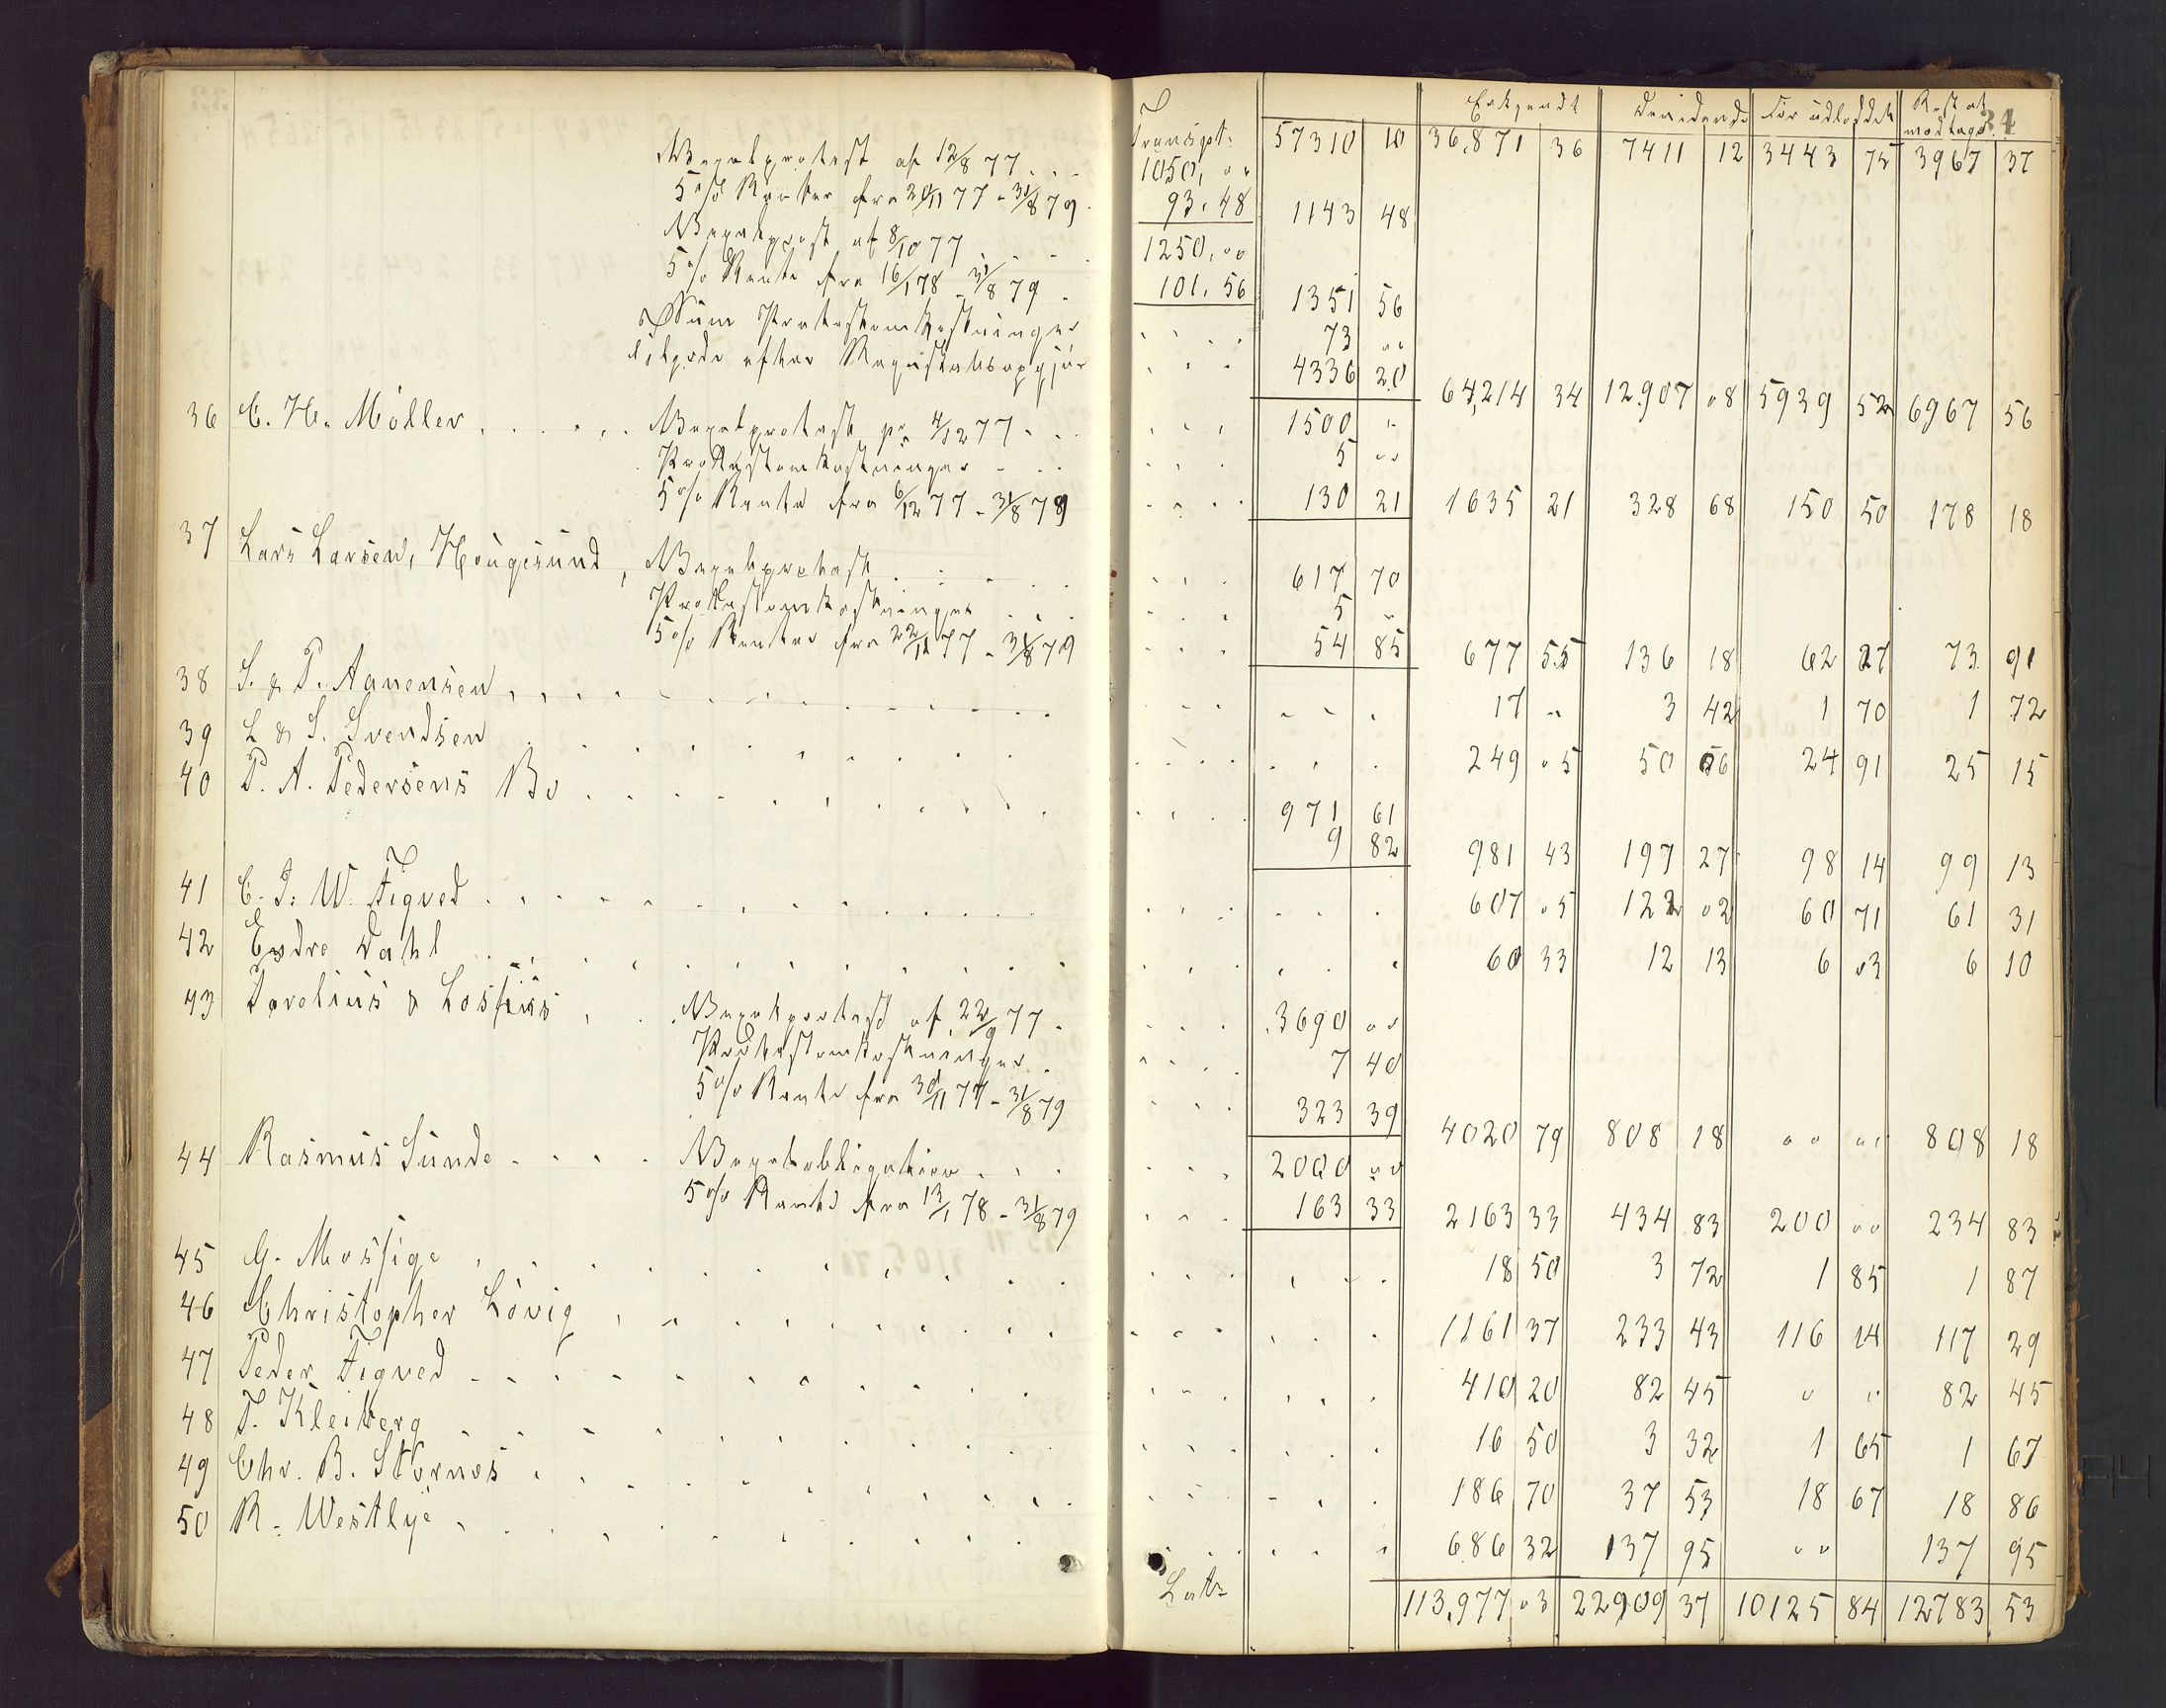 Erkjendt Dividende Før udloddet Rest at modtage 34
Transpt. 57310 10 36,871 36 7411 12 3443 75 3967 37
Vexelprotest af 12/8 77 . . . 1050, " "
5 % Renter fra 20/11 77 - 31/8 79 . 93. 48 1143 48
Vexelprotest af 8/10 77 . . . 1250, " "
5 % Rente fra 16/1 78 - 31/8 79 . 101. 56 1351 56
Protestomkostninger 73 " "
efter 4336 20 64,214 34 12907 08 5939 52 6967 56
36 C. H. Möller . . . . Vexelprotest pr. 4/12 77 . . 1500 "
Protestomkostninger . . . 5 " "
5 % Rente fra 6/12 77 - 31/8 79 130 21 1635 21 328 68 150 50 178 18
37 Lars Larsen, Hougesund , Vexelprotest . . . . 617 70
Protestomkostninger . . . 5 "
5 % Renter fra 22/11 77 - 31/8 79 54 85 677 55 136 18 62 27 73 91
38 S. & T. Aanensen . . . . 17 " 3 42 1 70 1 72
39 L & S. Svendsen . . . . 249 05 50 06 24 91 25 15
40 P. A. Pedersens Bo . . . . 971 61
9 82 981 43 197 27 98 14 99 13
41 C. J. W. Tiqved . . . . 607 05 122 02 60 71 61 31
42 Endre Dahl . . . . 60 33 12 13 6 03 6 10
43 & Lossius . . Vexelprotest af 22/9 77 . 3690 " "
Protestomkostninger . 7 40
5 % Rente fra 30/11 77 - 31/8 79 323 39 4020 79 808 18 " " " " 808 18
44 Rasmus Sunde . . . . Vexelobligation . . . 2000 " "
5 % Rente fra 13/1 78 - 31/8 79 163 33 2163 33 434 83 200 " " 234 83
45 G. Mossige . . . . 18 50 3 72 1 85 1 87
46 Christopher Lövig . . . . 1161 37 233 43 116 14 117 29
47 Peder Tiqved . . . . 410 20 82 45 " " 82 45
48 T. Kleiberg . . . . 16 50 3 32 1 65 1 67
49 Chr. B. Stornæs . . . . 186 70 37 53 18 67 18 86
50 R. Westlye . . . . 686 32 137 95 " " 137 95
Lats 113,977 03 22909 37 10125 84 12783 53